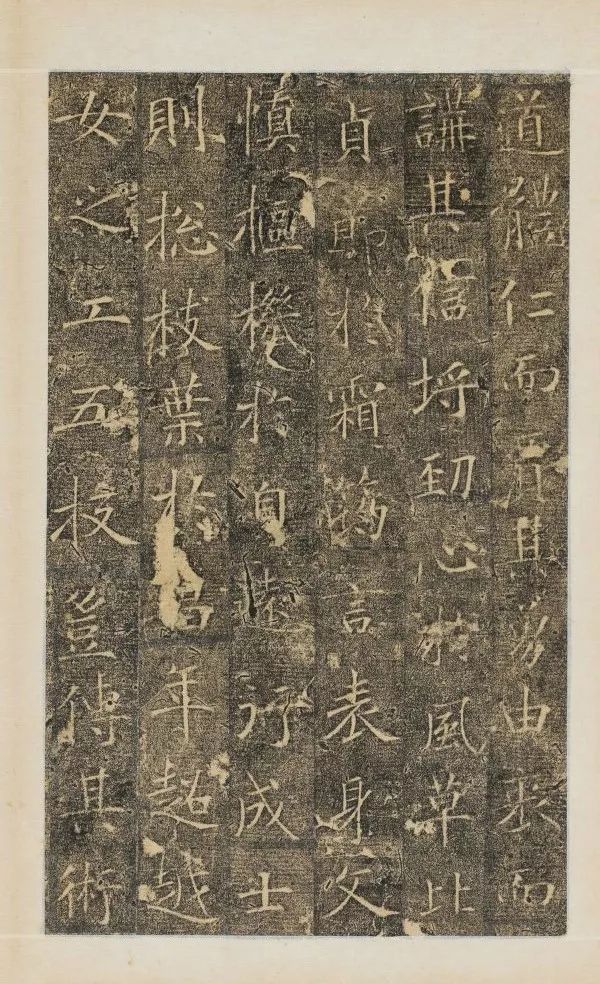 道體仁而其勞由衷而
講其信埒勁心於風草比
貞節於霜筠言表身文
慎樞機於自遠行成士
則捴枝葉於年超越
女之工五技豈傳其術